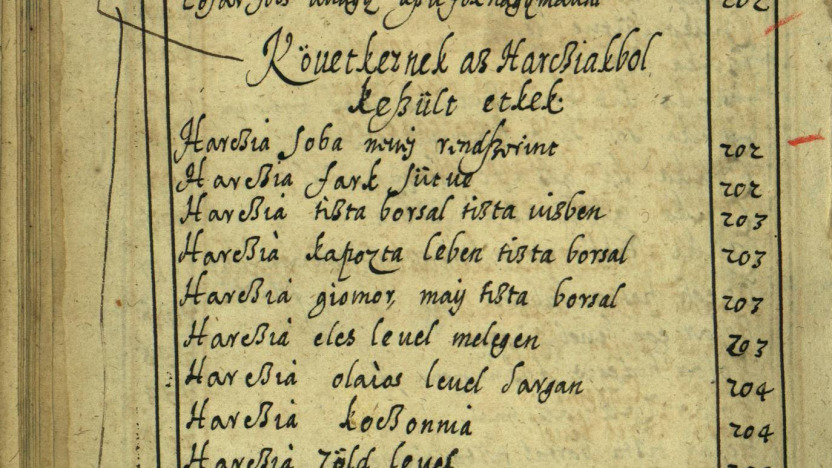 202
Következnek az Harcziakbol
keszült etkek:
Harczia soba menÿ rendszerint 202
Harczia fark sütue 202
Harczia tiszta borsal tiszta vizben 203
Harczia kapozta leben tiszta borsal 203
Harczia giomor, maÿ tiszta borsal 203
Harczia eles leuel melegen 203
Harczia olaios leuel sargan 204
Harczia koczonnia 204
Harczia zöld leuel